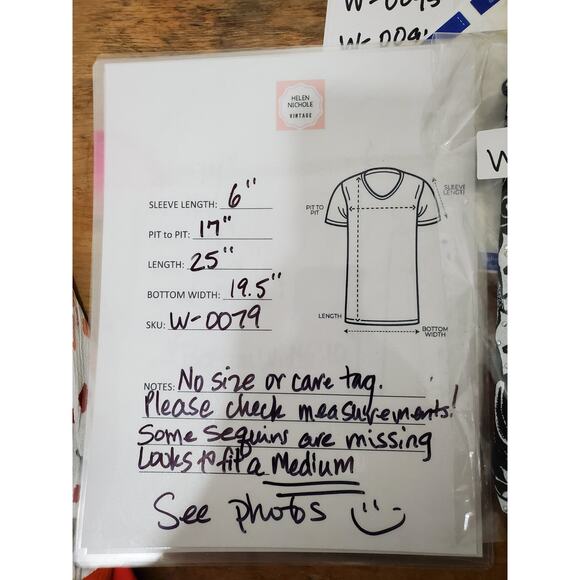 W-0093
W-009
HELEN
NICHOLE
VINTAGE
SLEEVE LENGTH: 6"
PIT to PIT: 17"
LENGTH: 25"
BOTTOM WIDTH: 19.5"
SKU: W-0079
PIT TO
PIT
SLEEVE
LENGTH
LENGTH
BOTTOM
WIDTH
W
NOTES: No size or care tag.
Please check measurements!
Some sequins are missing
Looks to fit a Medium
See photos